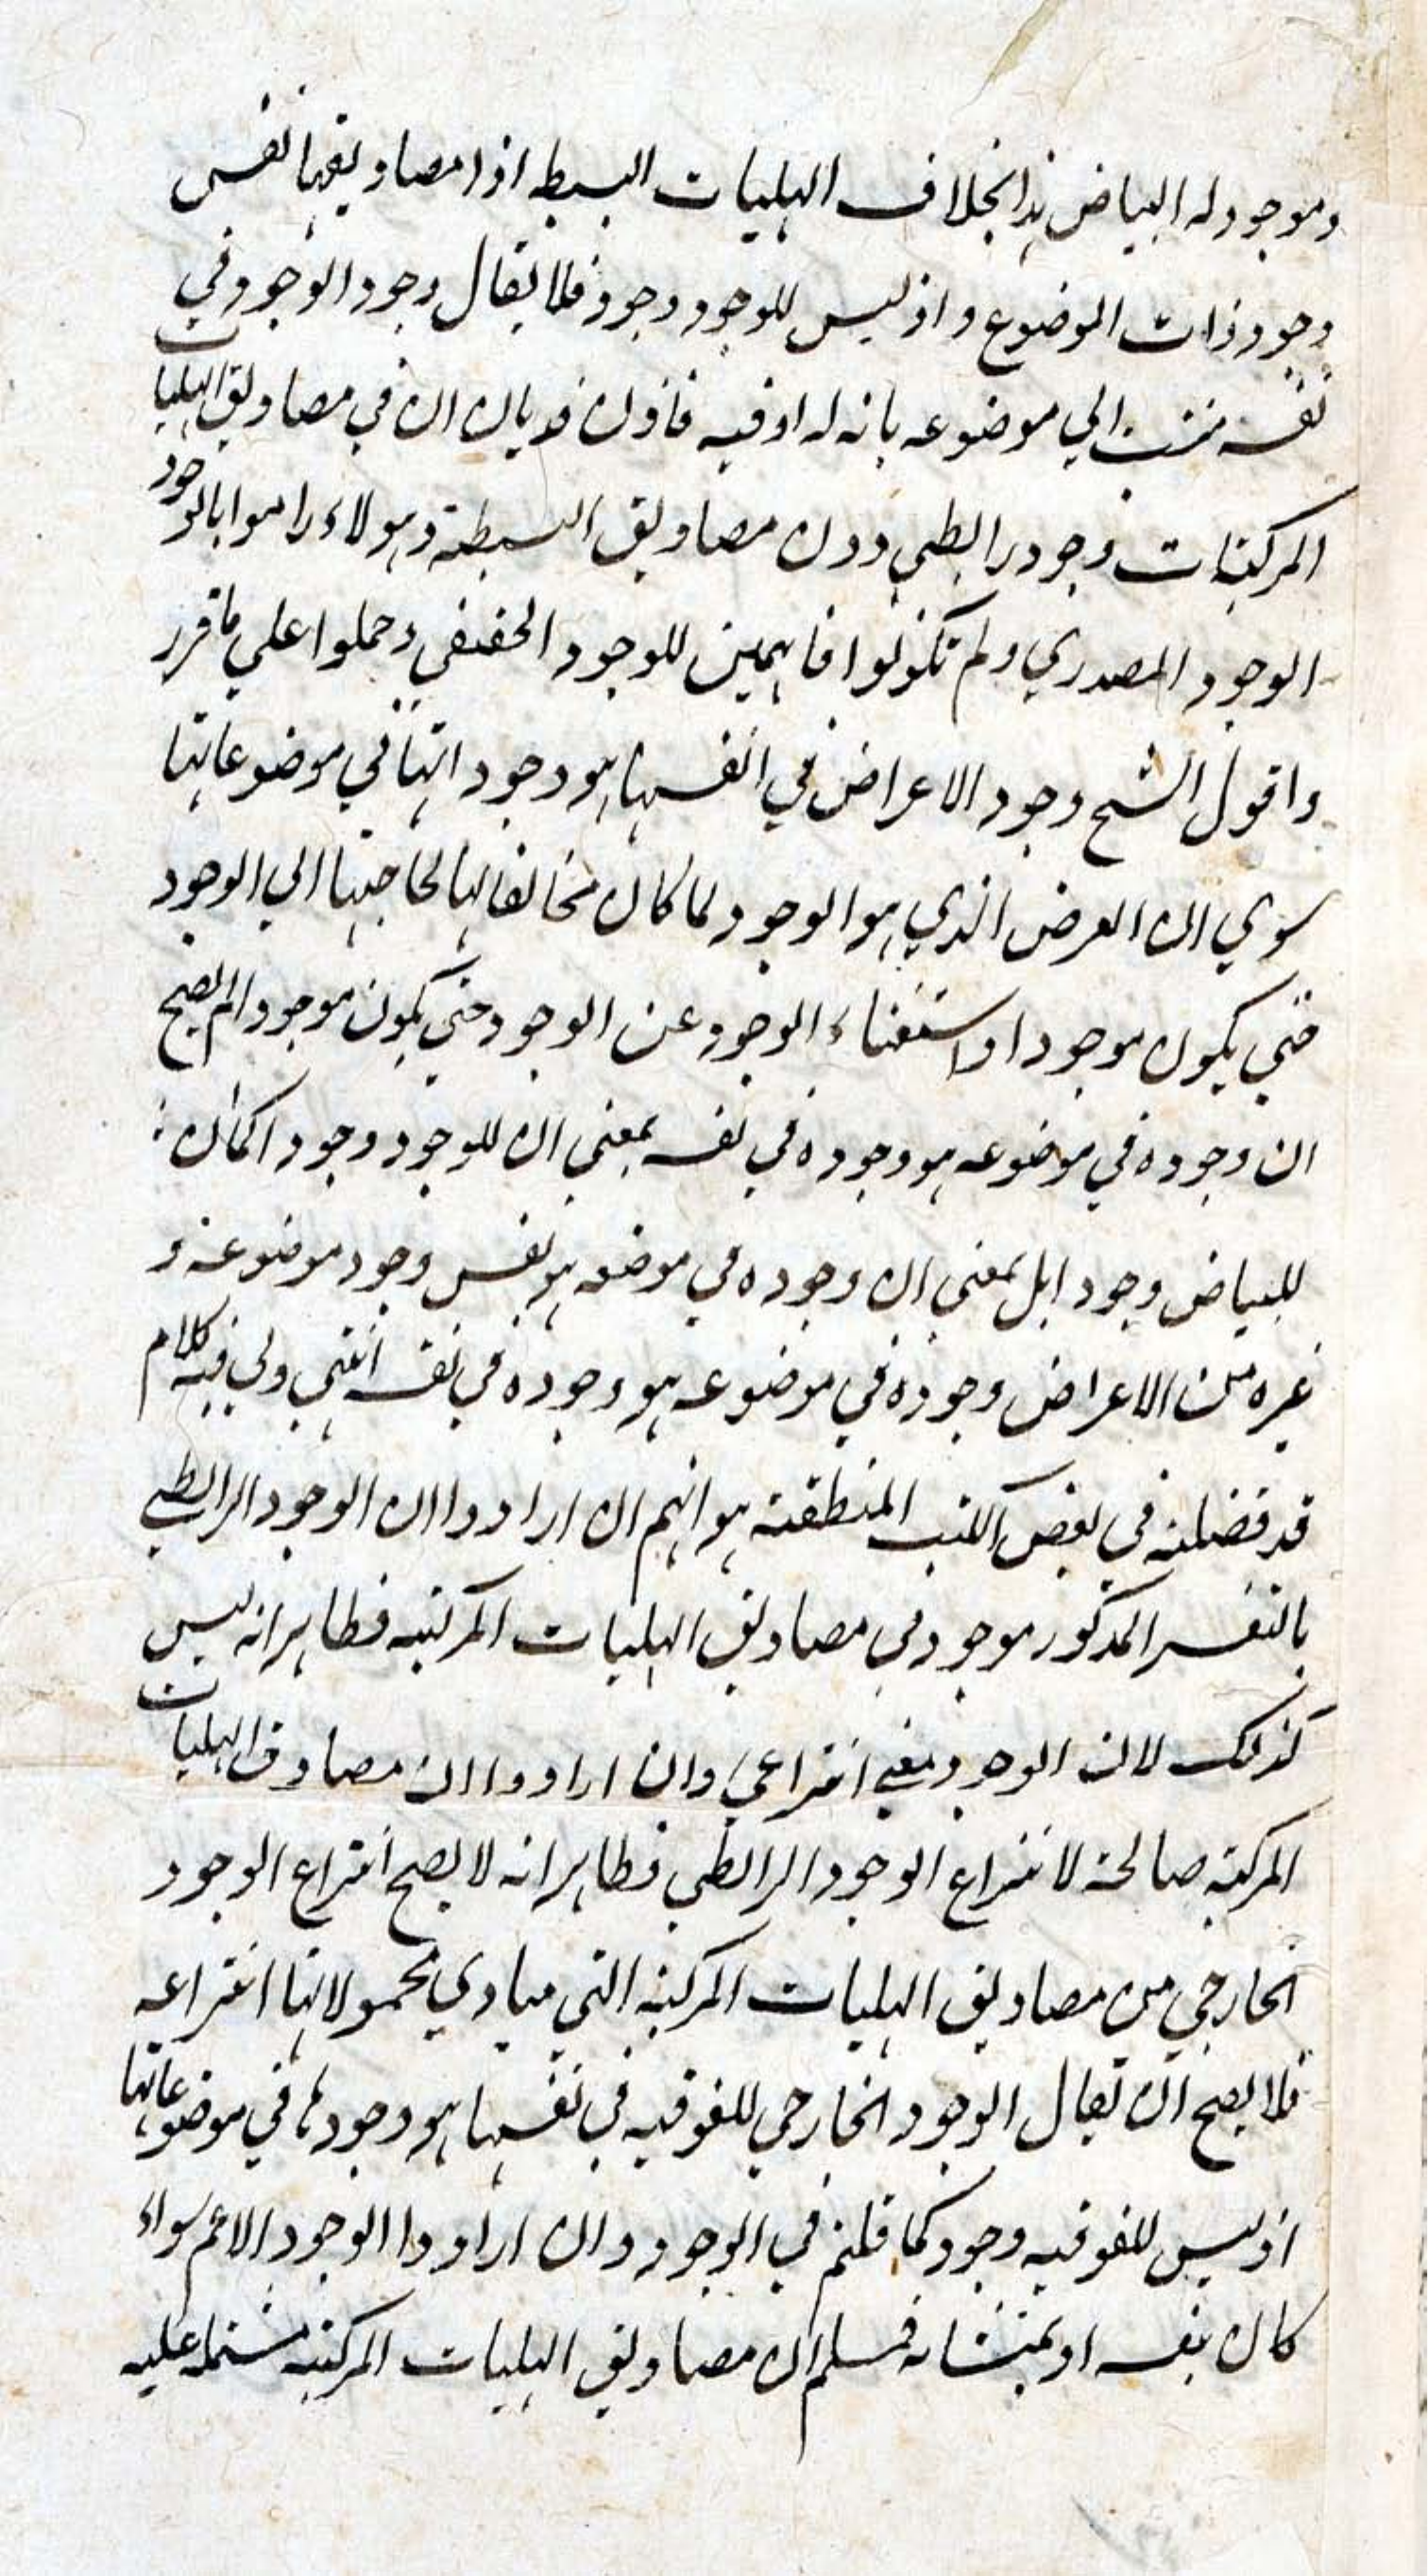 وموجود له البياض هذا بخلاف الهليات البسيطه اذا مصاديقها نفس
وجود ذات الموضوع واذ ليس للوجود وجود فلا يقال وجود الوجود في
نفسه منتسب الي موضوعه بانه له او فيه فاذن قد بان ان في مصاديق الهليات
المركبات وجود رابطي دون مصاديق البسيطة وهولاء راموا بالوجود
الوجود المصدري ولم تكونوا فاهمين للوجود الحقيقي وحملوا علي ما قرر
واقول الشيخ وجود الاعراض في انفسها هو وجوداتها في موضوعاتها
سوي ان العرض الذي هو الوجود لما كان مخالفا لها لحاجتها الي الوجود
حتي يكون موجودا واستغناء الوجود عن الوجود حتي يكون موجودا لم يصح
ان وجوده في موضوعه هو وجوده في نفسه بمعني ان للوجود وجودا كما ان
للبياض وجودا بل بمعني ان وجوده في موضعه هو نفس وجود موضوعه و
غيره من الاعراض وجوده في موضوعه هو وجوده في نفسه انتهي ولي فيه كلام
قد فصلته في بعض الكتب المنطقية هو انهم ان ارادوا ان الوجود الرابطي
بالتفسير المذكور موجود في مصاديق الهليات المركبه فظاهر انه ليس
كذلك لان الوجود معني انتزاعي وان ارادوا ان مصادق الهليات
المركبة صالحة لانتزاع الوجود الرابطي فظاهر انه لا يصح انتزاع الوجود
الخارجي من مصاديق الهليات المركبه التي مبادي محمولاتها انتزاعيه
فلا يصح ان يقال الوجود الخارجي للفوقيه في نفسها هو وجودها في موضوعاتها
اذ ليس للفوقيه وجود كما قلتم في الوجود وان ارادوا الوجود الاعم سواء
كان بنفسه او بمنشائه فمسلم ان مصاديق الهليات المركبه مشتمله عليه